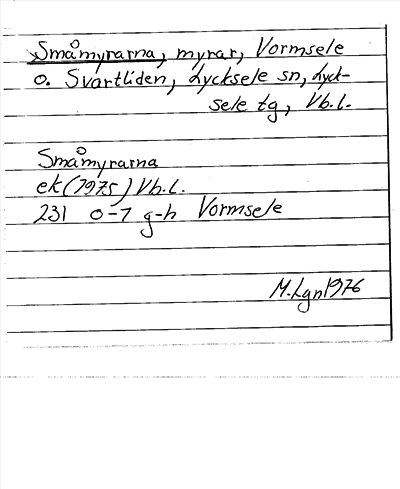 Småmyrarna, myrar, Vormsele
o. Svartliden, Lycksele sn, Lyck-
sele tg, Vb.l.
Småmyrarna
ek (1975) Vb.l.
231 0-1 g-h Vormsele
M.Lgn 1976